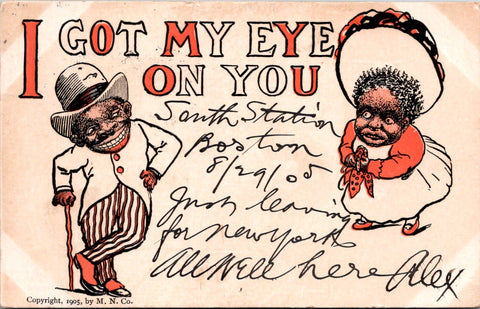 I GOT MY EYE
ON YOU
South Station
Boston
8/29/05
Just leaving
for New York
All Well here Alex
Copyright, 1905, by M. N. Co.